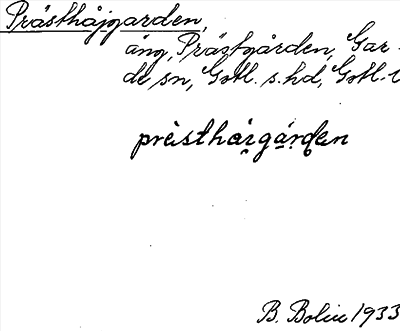 Prästhåjgarden,
äng, Prästgården, Gar-
de sn, Gotl. s. hd, Gotl. l
prèisthåi̯gárdɘn
B. Bolin 1933